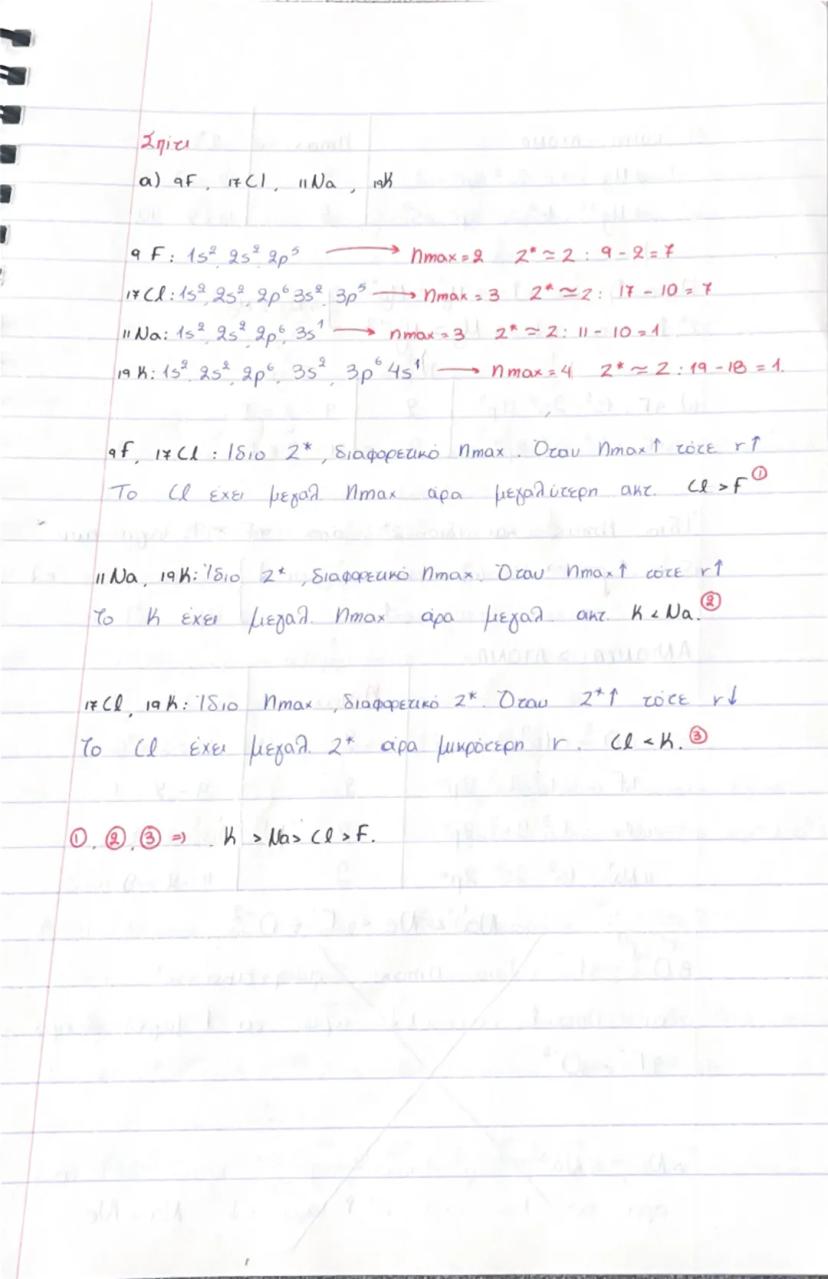 Σπίτι
α) 9F, 17Cl, 11Na, 19K
9F: 1s² 2s² 2p⁵ → nmax = 2 Z* ≃ 2 : 9 - 2 = 7
17Cl: 1s² 2s² 2p⁶ 3s² 3p⁵ → nmax = 3 Z* ≃ 2 : 17 - 10 = 7
11Na: 1s² 2s² 2p⁶ 3s¹ → nmax = 3 Z* ≃ 2 : 11 - 10 = 1
19K: 1s² 2s² 2p⁶ 3s² 3p⁶ 4s¹ → nmax = 4 Z* ≃ 2 : 19 - 18 = 1.
9F, 17Cl : Ίδιο Z*, διαφορετικό nmax. Όταν nmax↑ τότε r↑
Το Cl έχει μεγαλ nmax άρα μεγαλύτερη ακτ. Cl > F ①
11Na, 19K: Ίδιο Z*, διαφορετικό nmax. Όταν nmax↑ τότε r↑
Το K έχει μεγαλ. nmax άρα μεγαλ. ακτ. K < Na. ②
17Cl, 19K: Ίδιο nmax, διαφορετικό Z*. Όταν Z*↑ τότε r↓
Το Cl έχει μεγαλ. Z* άρα μικρότερη r. Cl < K. ③
①, ②, ③ ⇒ K > Na > Cl > F.